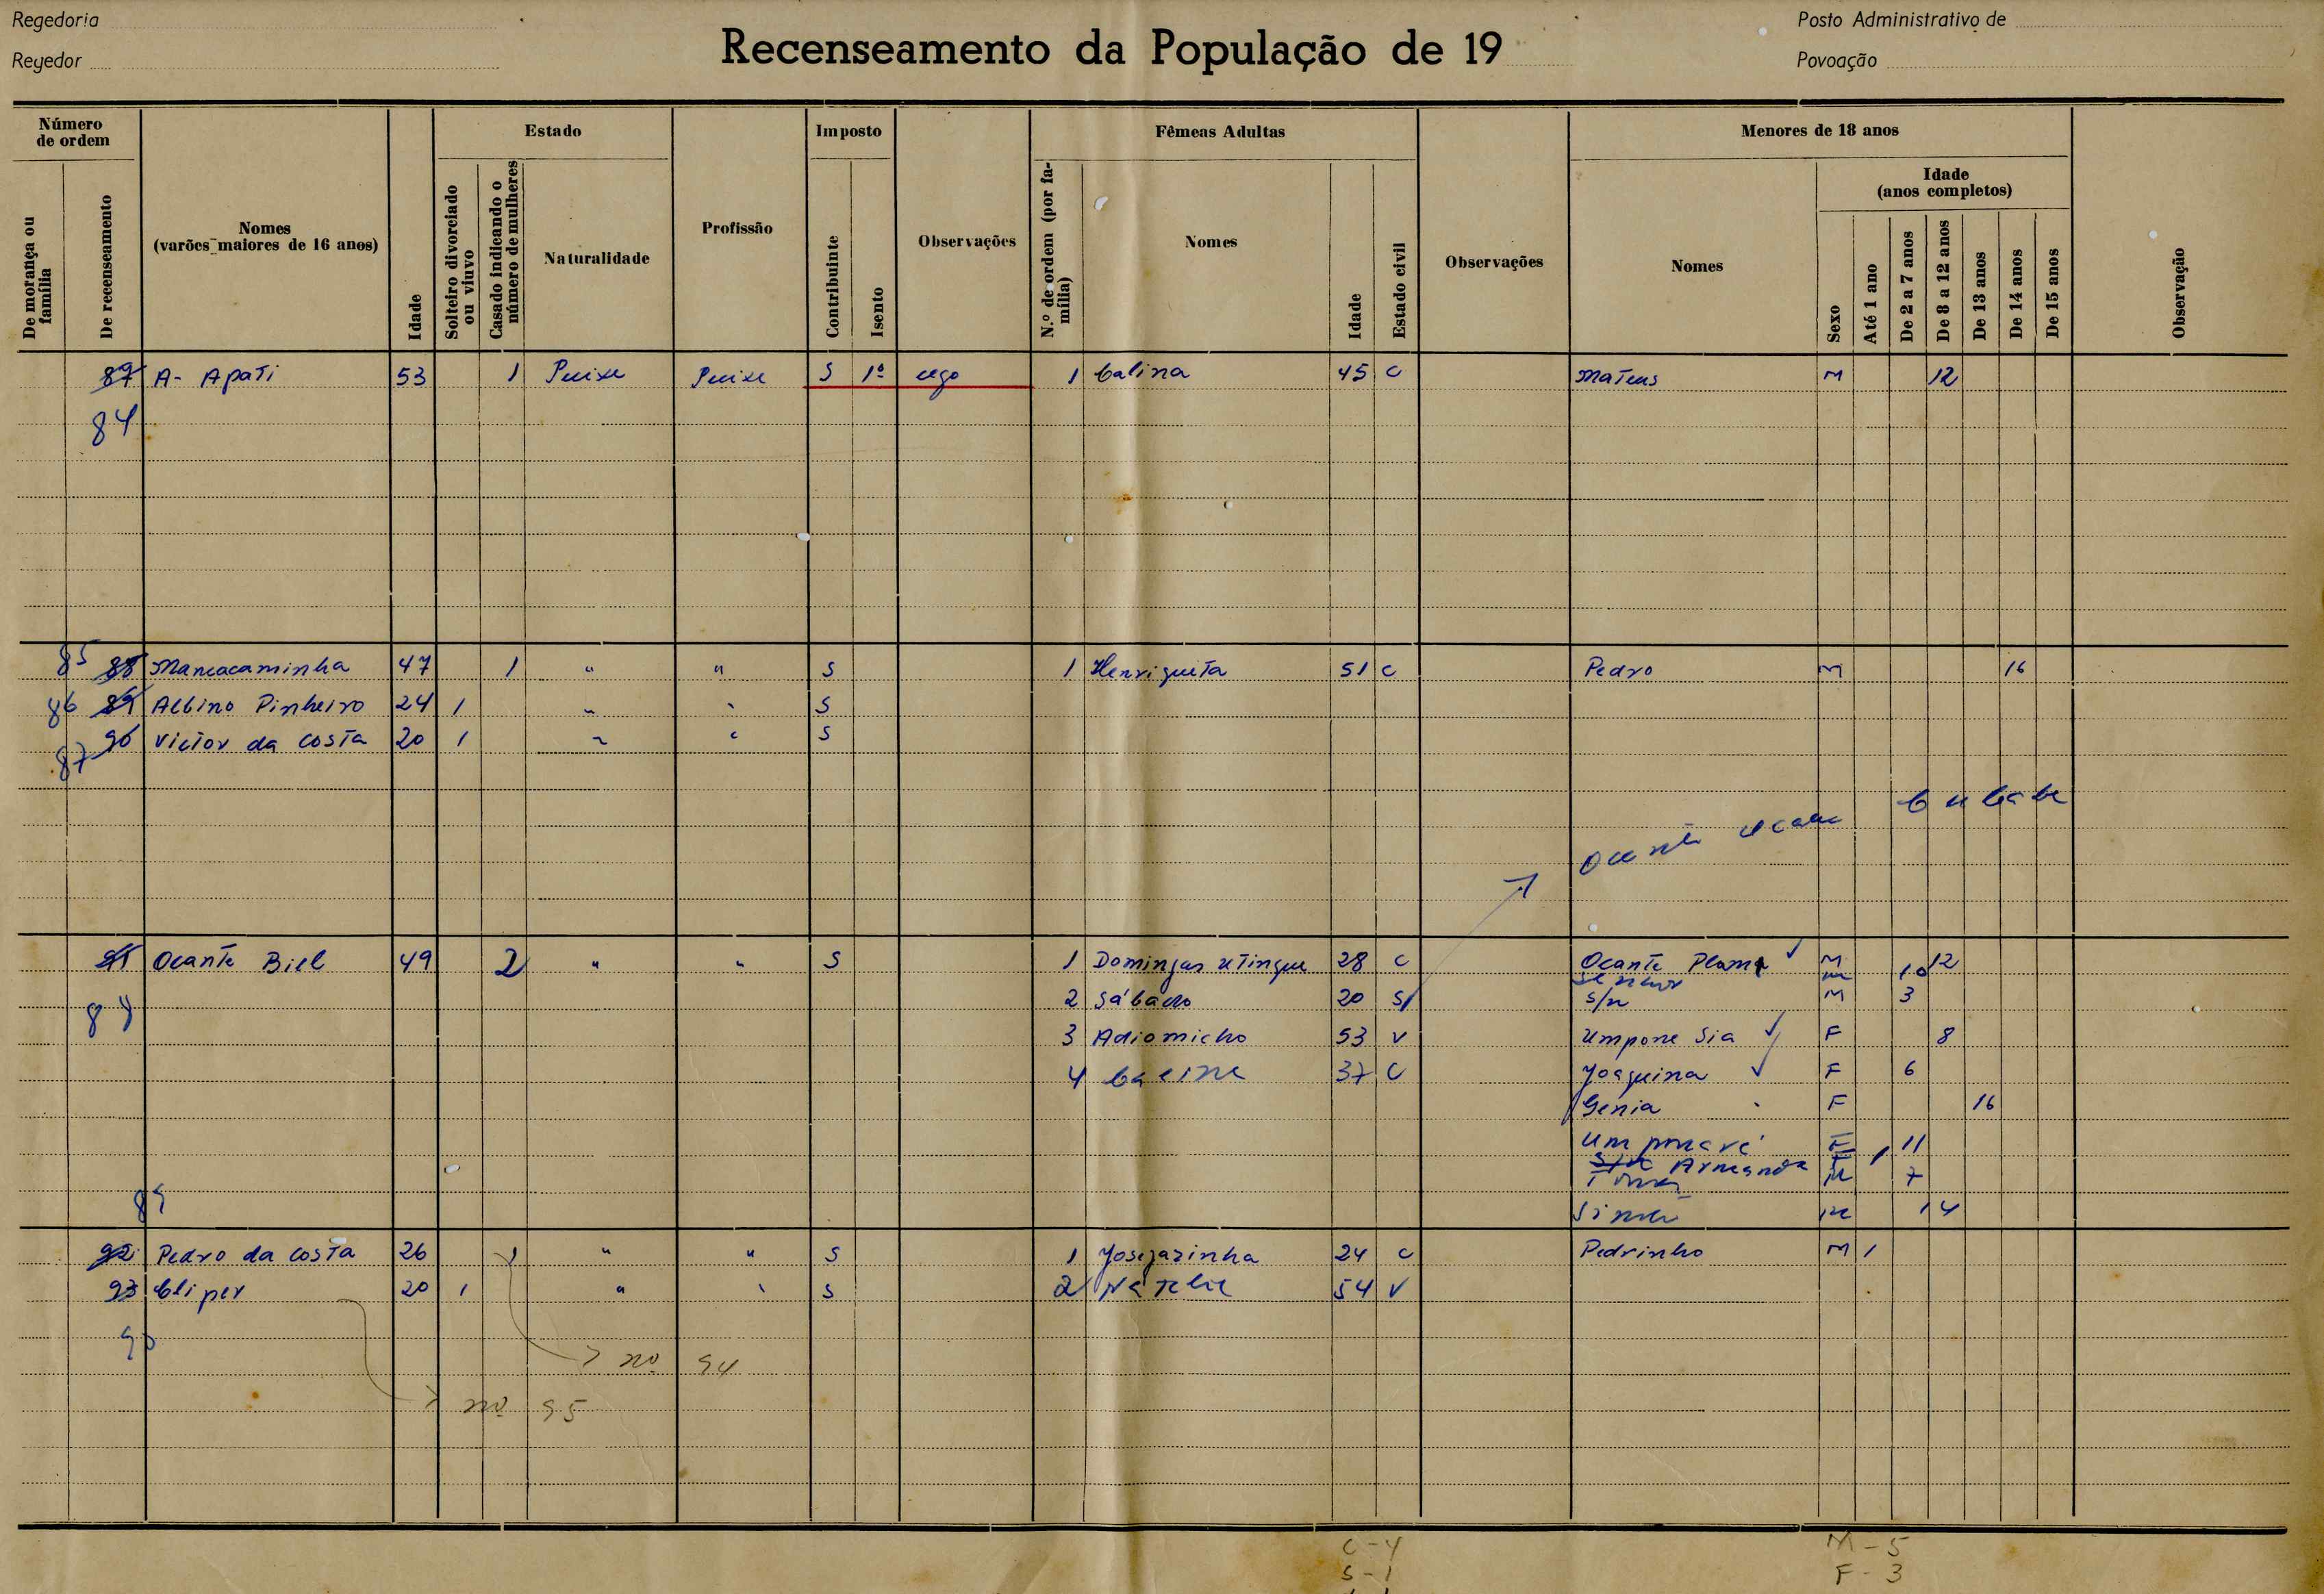 Regedoria
Regedor
Recenseamento da População de 19
Posto Administrativo de
Povoação
Número de ordem
De morança ou família
De recenseamento
Nomes
(varões maiores de 16 anos)
Idade
Estado
Solteiro divorciado ou viuvo
Casado indicando o número de mulheres
Naturalidade
Profissão
Imposto
Contribuinte
Isento
Observações
Fêmeas Adultas
N.º de ordem (por família)
Nomes
Idade
Estado civil
Observações
Menores de 18 anos
Nomes
Sexo
Idade
(anos completos)
Até 1 ano
De 2 a 7 anos
De 8 a 12 anos
De 13 anos
De 14 anos
De 15 anos
Observação
87 A- Apati 53 1 S 1º cego 1 Calina 45 C Mateus M 12
84
85 88 Mancacaminha 47 1 " " S 1 Henriqueta 51 C Pedro M 16
86 89 Albino Pinheiro 24 1 " " S
90 Victor da Costa 20 1 " " S
87
91 Ocante Biel 49 2 " " S 1 Domingas Utingue 28 C Ocante M 12
M 10
2 Sábado 20 S s/n M 3
3 Adiomicho 53 V Umpone Sia F 8
4 37 C Joaquina F 6
Genia F 16
F 11
Armando
7
89
M 14
92 Pedro da Costa 26 1 " " S 1 Josezazinha 24 C Pedrinho M 1
93 Cliper 20 1 " " S 2 54 V
90
nº 94
nº 95
C - 4
S - 1
M - 5
F - 3